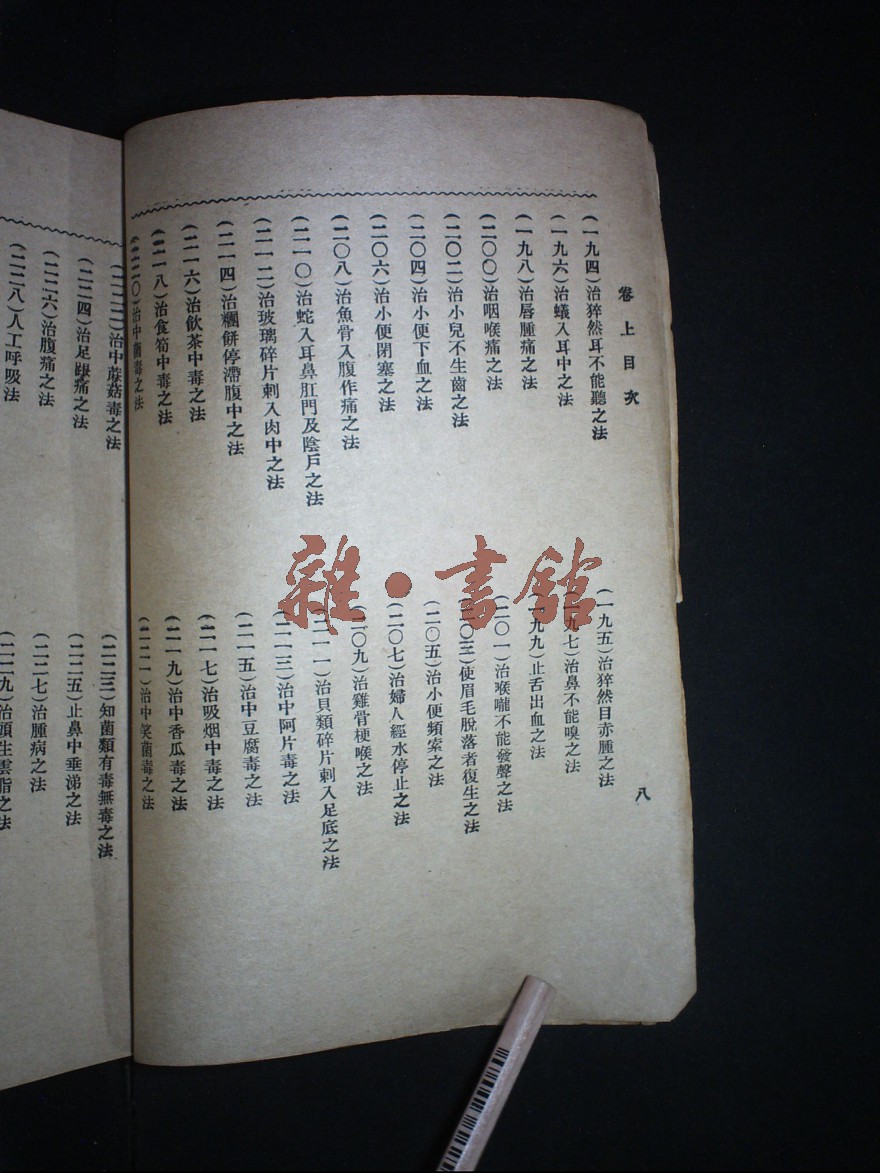 卷上目次
八
(一九四)治猝然耳不能聽之法
(一九五)治猝然目赤腫之法
(一九六)治蟻入耳中之法
(一九七)治鼻不能嗅之法
(一九八)治唇腫痛之法
(一九九)止舌出血之法
(二〇〇)治咽喉痛之法
(二〇一)治喉嚨不能發聲之法
(二〇二)治小兒不生齒之法
(二〇三)使眉毛脫落者復生之法
(二〇四)治小便下血之法
(二〇五)治小便頻索之法
(二〇六)治小便閉塞之法
(二〇七)治婦人經水停止之法
(二〇八)治魚骨入腹作痛之法
(二〇九)治雞骨梗喉之法
(二一〇)治蛇入耳鼻肛門及陰戶之法
(二一一)治貝類碎片刺入足底之法
(二一二)治玻璃碎片刺入肉中之法
(二一三)治中阿片毒之法
(二一四)治糰餅停滯腹中之法
(二一五)治中豆腐毒之法
(二一六)治飲茶中毒之法
(二一七)治吸烟中毒之法
(二一八)治食筍中毒之法
(二一九)治中香瓜毒之法
(二二〇)治中菌毒之法
(二二一)治中笑菌毒之法
(二二二)治中蘑菇毒之法
(二二三)知菌類有毒無毒之法
(二二四)治足趼痛之法
(二二五)止鼻中垂涕之法
(二二六)治腹痛之法
(二二七)治腫病之法
(二二八)人工呼吸法
(二二九)治頭生雲脂之法
雜·書館